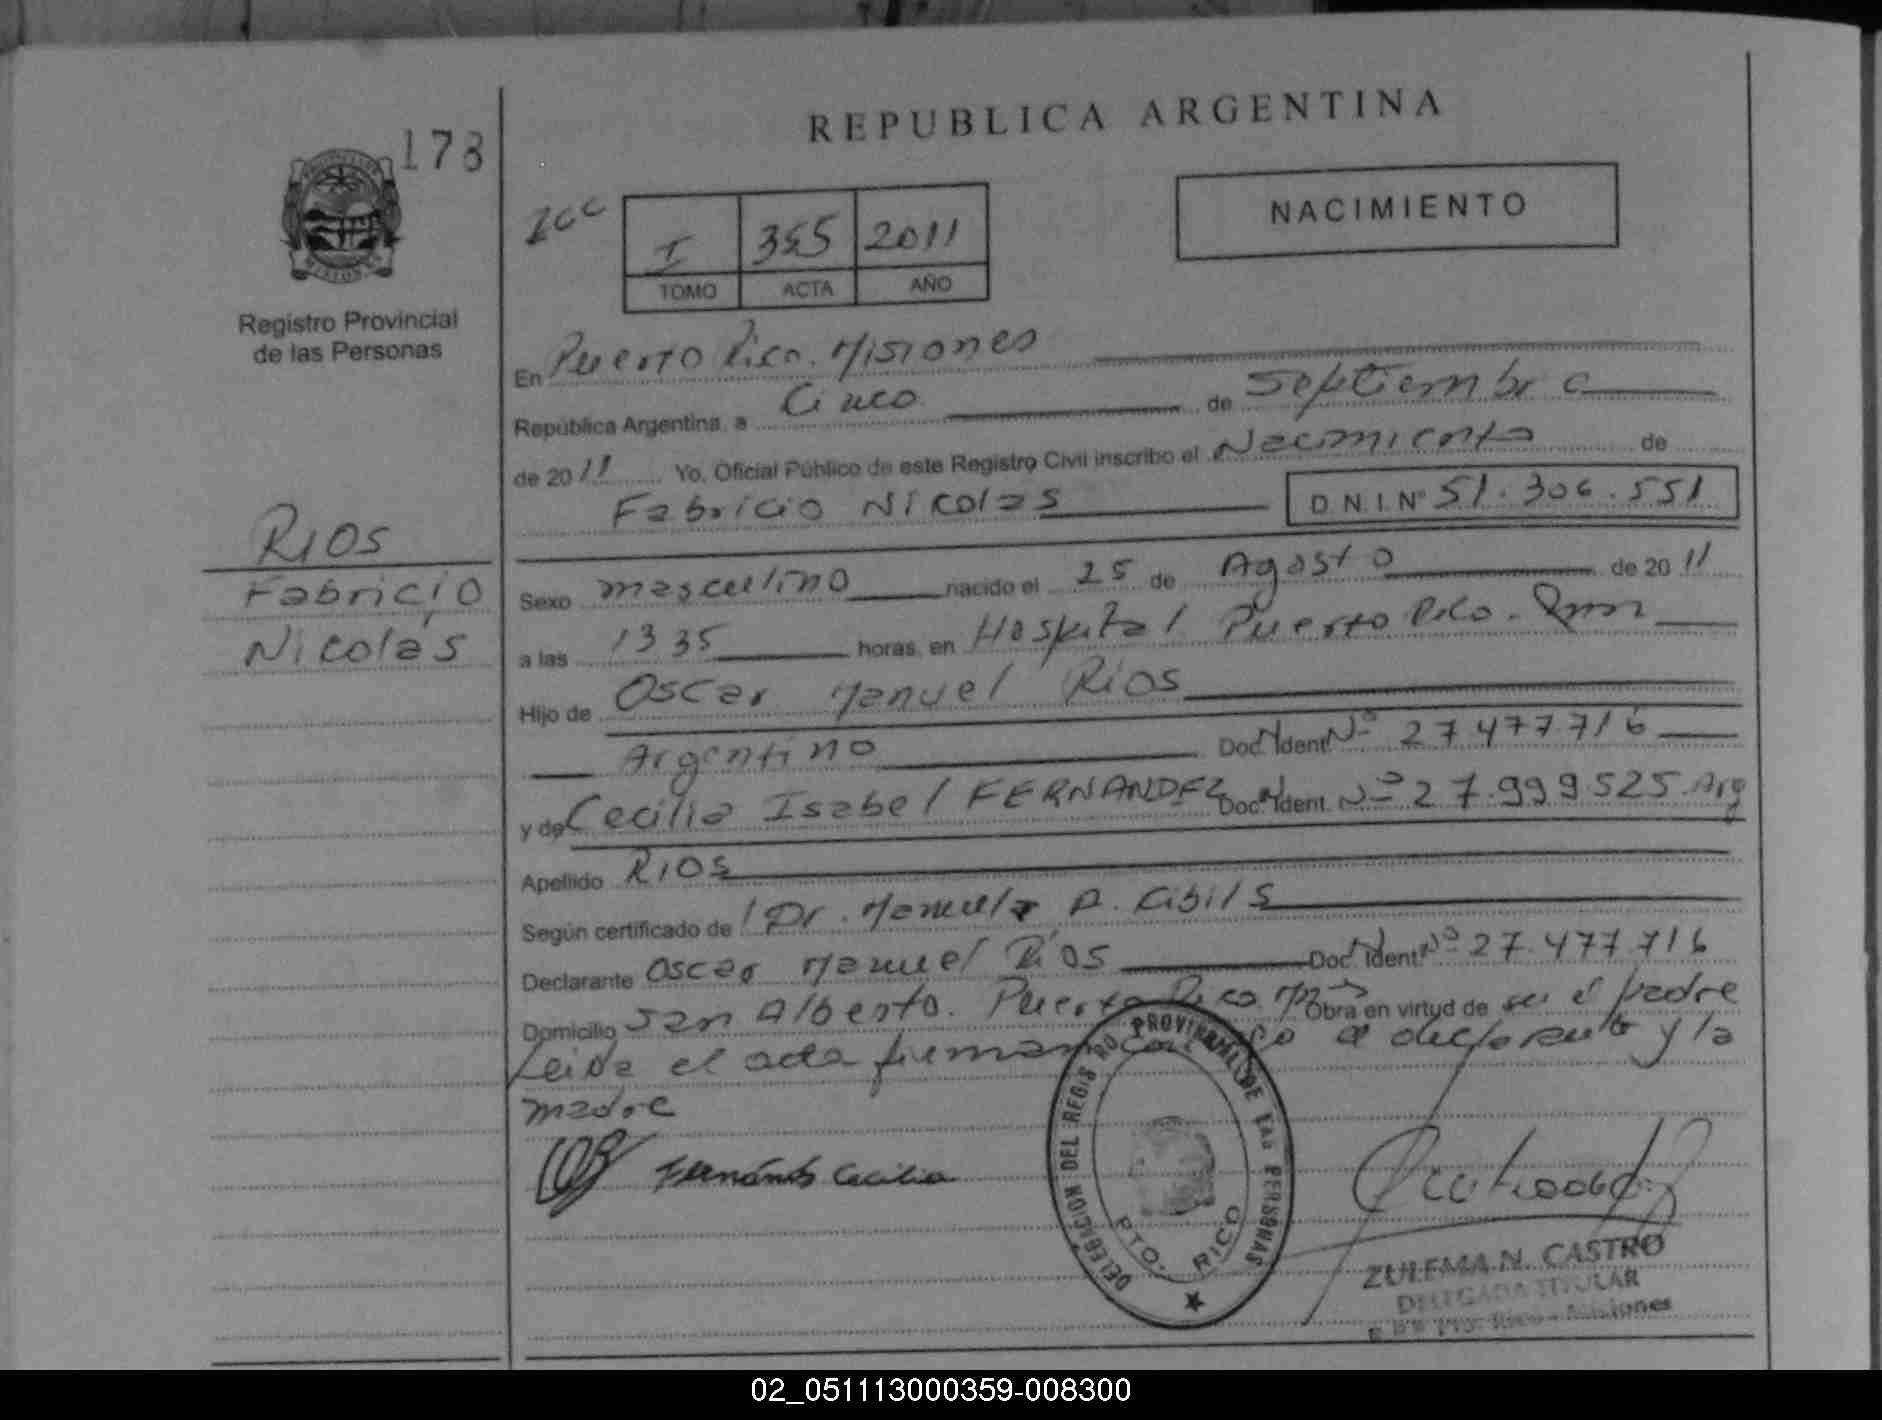 REPUBLICA ARGENTINA
178
NACIMIENTO
I 355 2011
TOMO ACTA AÑO
Registro Provincial
de las Personas
En Puerto Rico. Misiones
República Argentina, a Cinco de Septiembre
de 2011 Yo, Oficial Público de este Registro Civil inscribo el Nacimiento de
Fabricio Nicolas D.N.I. Nº 51.306.551
RIOS
Fabricio
Nicolás
Sexo masculino nacido el 25 de Agosto de 2011
a las 13 35 horas, en Hospital Puerto Rico.
Hijo de Oscar Manuel Ríos
Argentino Doc. Ident. Nº 27 477.716
y de Cecilia Isabel FERNANDEZ Doc. Ident. Nº 27.999525 Arg
Apellido RIOS
Según certificado de Dr. A. Cibils
Declarante Oscar Manuel Ríos Doc. Ident. Nº 27.477.716
Domicilio San Alberto. Puerto Rico Obra en virtud de ser el padre
Leida el acta firman el declarante y la
madre
Fernández Cecilia
DELEGACION DEL REGISTRO PROVINCIAL DE LAS PERSONAS
PTO. RICO
ZULEMA N. CASTRO
DELEGADA TITULAR
Pto. Rico - Misiones
02_051113000359-008300